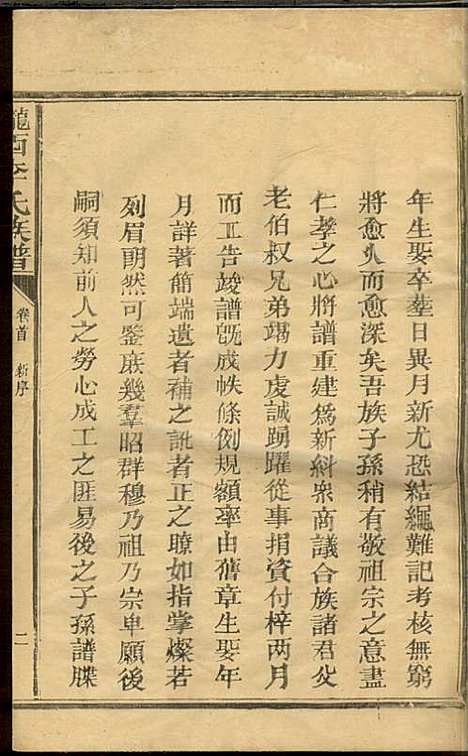 年生娶卒塟日異月新尤恐結繩難記考核無窮
將愈久而愈深矣吾族子孫稍有敬祖宗之意盡
仁孝之心將譜重建爲新糾衆商議合族諸君父
老伯叔兄弟竭力虔誠踴躍從事捐資付梓两月
而工告竣譜旣成帙條例規額率由舊章生娶年
月詳著簡端遺者補之訛者正之瞭如指掌燦若
列眉朗然可鑒庶幾羣昭群穆乃祖乃宗卑願後
嗣須知前人之勞心成工之匪易後之子孫譜牒
隴西李氏族譜
卷首
新序
二